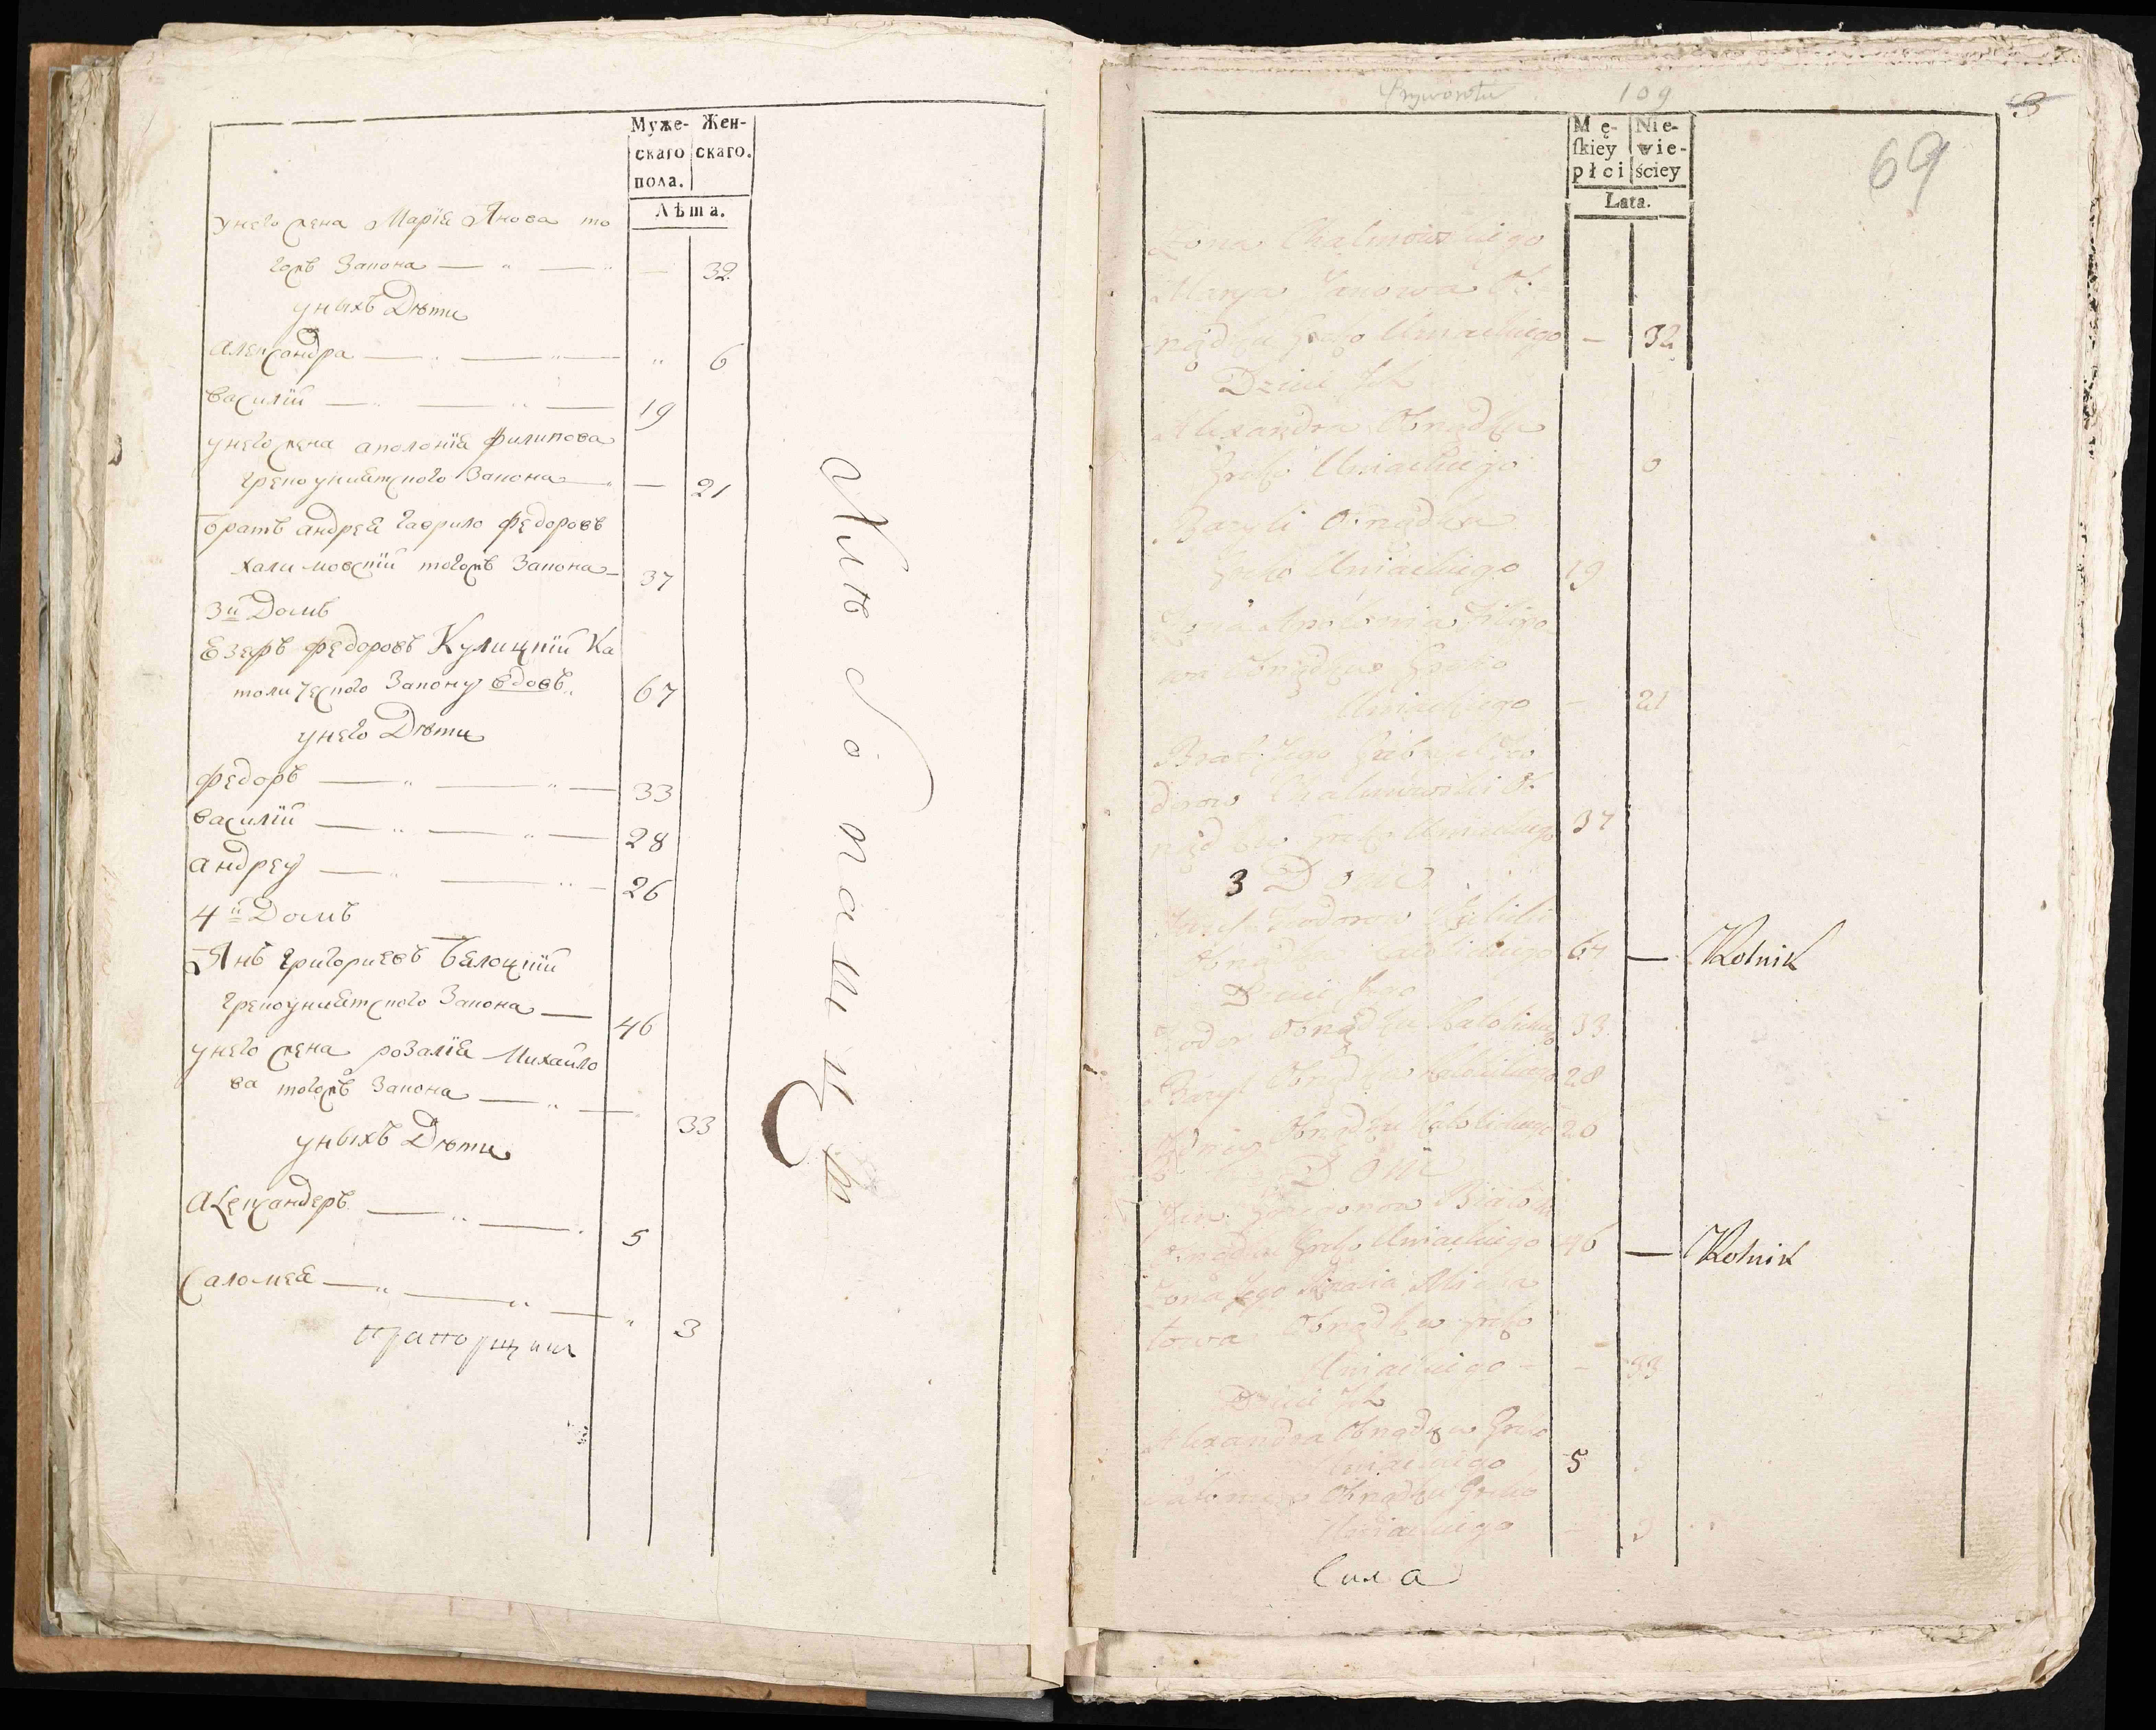 Муже- Жен-
скаго скаго.
пола.
Лѣта.
унего жена Марїя Янова то
гожъ Закона — " — " — 32
уныхъ Дѣти
александра — " — " — " 6
василїй — " — " — 19
унего жена аполонїя филипова
грекоуниятского Закона — — 21
братъ андрея гаврило федоровъ
халимовскїй тогожъ Закона — 37
3й Домъ
Езефъ федоровъ Кулицкїй Ка
толического Закону вдовъ " 67
унего Дѣти
федоръ — " — " — 33
василїй — " — " — 28
андрей — " — " — 26
4й Домъ
Янъ григориевъ Бялоцкїй
грекоуниятского Закона — 46
унего жена розалїя Михайло
ва тогожъ Закона — " — 33
уныхъ Дѣти
Александеръ — " — 5
Саломея — " — " — " 3
прапорщикъ
109
3
69
Mę- Nie-
ſkiey wie-
płci ściey
Lata.
Żona Chalmowskiego
Marya Janowa Ob-
rządku Greko Uniackiego — 32
Dzieci Ich
Alexandra Obrządku
Greko Uniackiego 6
Bazyli Obrządku
Greko Uniackiego 19
Żona Apolonia Filipo
wa Obrządku Greko
Uniackiego — 21
Brat Jego Gabryel Fe
dorow Chalmowski Ob
rządku Greko Uniackiego 37
3 Dom
Jozef Fodorow Kulicki
Obrządku Katolickiego 67 — Rolnik
Dzieci Jego
Fodor Obrządku Katolickiego 33
Bazyl Obrządku Katolickiego 28
Obrządku Katolickiego 26
Dom
Jan Grzegorow Biało
Obrządku Greko Uniackiego 46 — Rolnik
Żona Jego
łowa Obrządku Greko
Uniackiego — — 33
Dzieci Ich
Alexandra Obrządku Greko
Uniackiego 5
Salomea Obrządku Greko
Uniackiego — 3
Сила